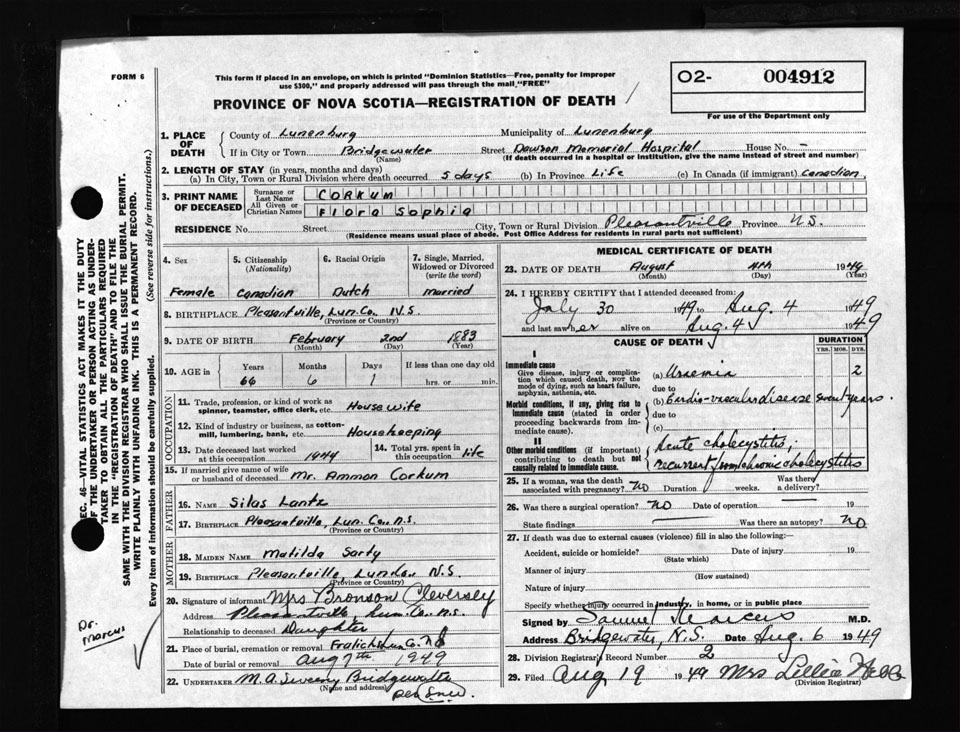 FORM 6
This form if placed in an envelope, on which is printed "Dominion Statistics—Free, penalty for improper
use $300," and properly addressed will pass through the mail "FREE"
O2- 004912
For use of the Department only
PROVINCE OF NOVA SCOTIA—REGISTRATION OF DEATH
1. PLACE OF DEATH
County of Lunenburg Municipality of Lunenburg
If in City or Town Bridgewater Street Dawson Memorial Hospital House No. -
(Name) (If death occurred in a hospital or institution, give the name instead of street and number)
2. LENGTH OF STAY (in years, months and days)
(a) In City, Town or Rural Division where death occurred 5 days (b) In Province Life (c) In Canada (if immigrant) Canadian
3. PRINT NAME OF DECEASED
Surname or Last Name CORKUM
All Given or Christian Names Flora Sophia
RESIDENCE No. Street City, Town or Rural Division Pleasantville Province N.S.
(Residence means usual place of abode. Post Office Address for residents in rural parts not sufficient)
4. Sex 5. Citizenship (Nationality) 6. Racial Origin 7. Single, Married, Widowed or Divorced (write the word)
Female Canadian Dutch married
8. BIRTHPLACE Pleasantville, Lun. Co. N.S.
(Province or Country)
9. DATE OF BIRTH February 2nd 1883
(Month) (Day) (Year)
10. AGE in Years Months Days If less than one day old
66 6 1 hrs. or min.
OCCUPATION
11. Trade, profession, or kind of work as
spinner, teamster, office clerk, etc. House wife
12. Kind of industry or business, as cotton-
mill, lumbering, bank, etc. Housekeeping
13. Date deceased last worked
at this occupation 1944
14. Total yrs. spent in
this occupation life
15. If married give name of wife
or husband of deceased Mr. Ammon Corkum
FATHER
16. NAME Silas Lantz
17. BIRTHPLACE Pleasantville, Lun. Co., N.S.
MOTHER
18. MAIDEN NAME Matilda Sarty
19. BIRTHPLACE Pleasantville Lun. Co. N.S.
(Province or Country)
20. Signature of informant Mrs Bronson Cleversey
Address Pleasantville, Lun. Co. N.S.
Relationship to deceased Daughter
21. Place of burial, cremation or removal Lun. Co. N.S.
Date of burial or removal Aug 7th 1949
22. UNDERTAKER M.A. Sweeny Bridgewater
(Name and address)
per
MEDICAL CERTIFICATE OF DEATH
23. DATE OF DEATH August 4th 1949
(Month) (Day) (Year)
24. I HEREBY CERTIFY that I attended deceased from:
July 30 1949 to Aug. 4 1949
and last saw her alive on Aug. 4 1949
CAUSE OF DEATH DURATION
YRS. MOS. DYS.
I
Immediate cause
Give disease, injury or complica-
tion which caused death, NOT the
mode of dying, such as heart failure,
asphyxia, asthenia, etc.
(a) Uraemia 2
due to
Morbid conditions, if any, giving rise to
immediate cause (stated in order
proceeding backwards from im-
mediate cause).
(b) Cardio-vascular disease Seven years.
due to
(c)
II
Other morbid conditions (if important)
contributing to death but not
causally related to immediate cause.
Acute cholecystitis;
recurrent from chronic cholecystitis
25. If a woman, was the death
associated with pregnancy? NO Duration weeks. Was there
a delivery?
26. Was there a surgical operation? NO Date of operation 19
State findings Was there an autopsy? NO
27. If death was due to external causes (violence) fill in also the following:—
Accident, suicide or homicide? Date of injury 19
(State which)
Manner of injury
(How sustained)
Nature of injury
Specify whether injury occurred in industry, in home, or in public place
Signed by Samuel Marcus M.D.
Address Bridgewater, N.S. Date Aug. 6 1949
28. Division Registrar's Record Number 2
29. Filed Aug 19 1949 Mrs Lillia
(Division Registrar)
SEC. 46—VITAL STATISTICS ACT MAKES IT THE DUTY
OF THE UNDERTAKER OR PERSON ACTING AS UNDER-
TAKER TO OBTAIN ALL THE PARTICULARS REQUIRED
IN THE "REGISTRATION OF DEATH" AND TO FILE THE
SAME WITH THE DIVISION REGISTRAR WHO SHALL ISSUE THE BURIAL PERMIT.
WRITE PLAINLY WITH UNFADING INK. THIS IS A PERMANENT RECORD.
Every item of information should be carefully supplied. (See reverse side for instructions.)
Dr.
Marcus